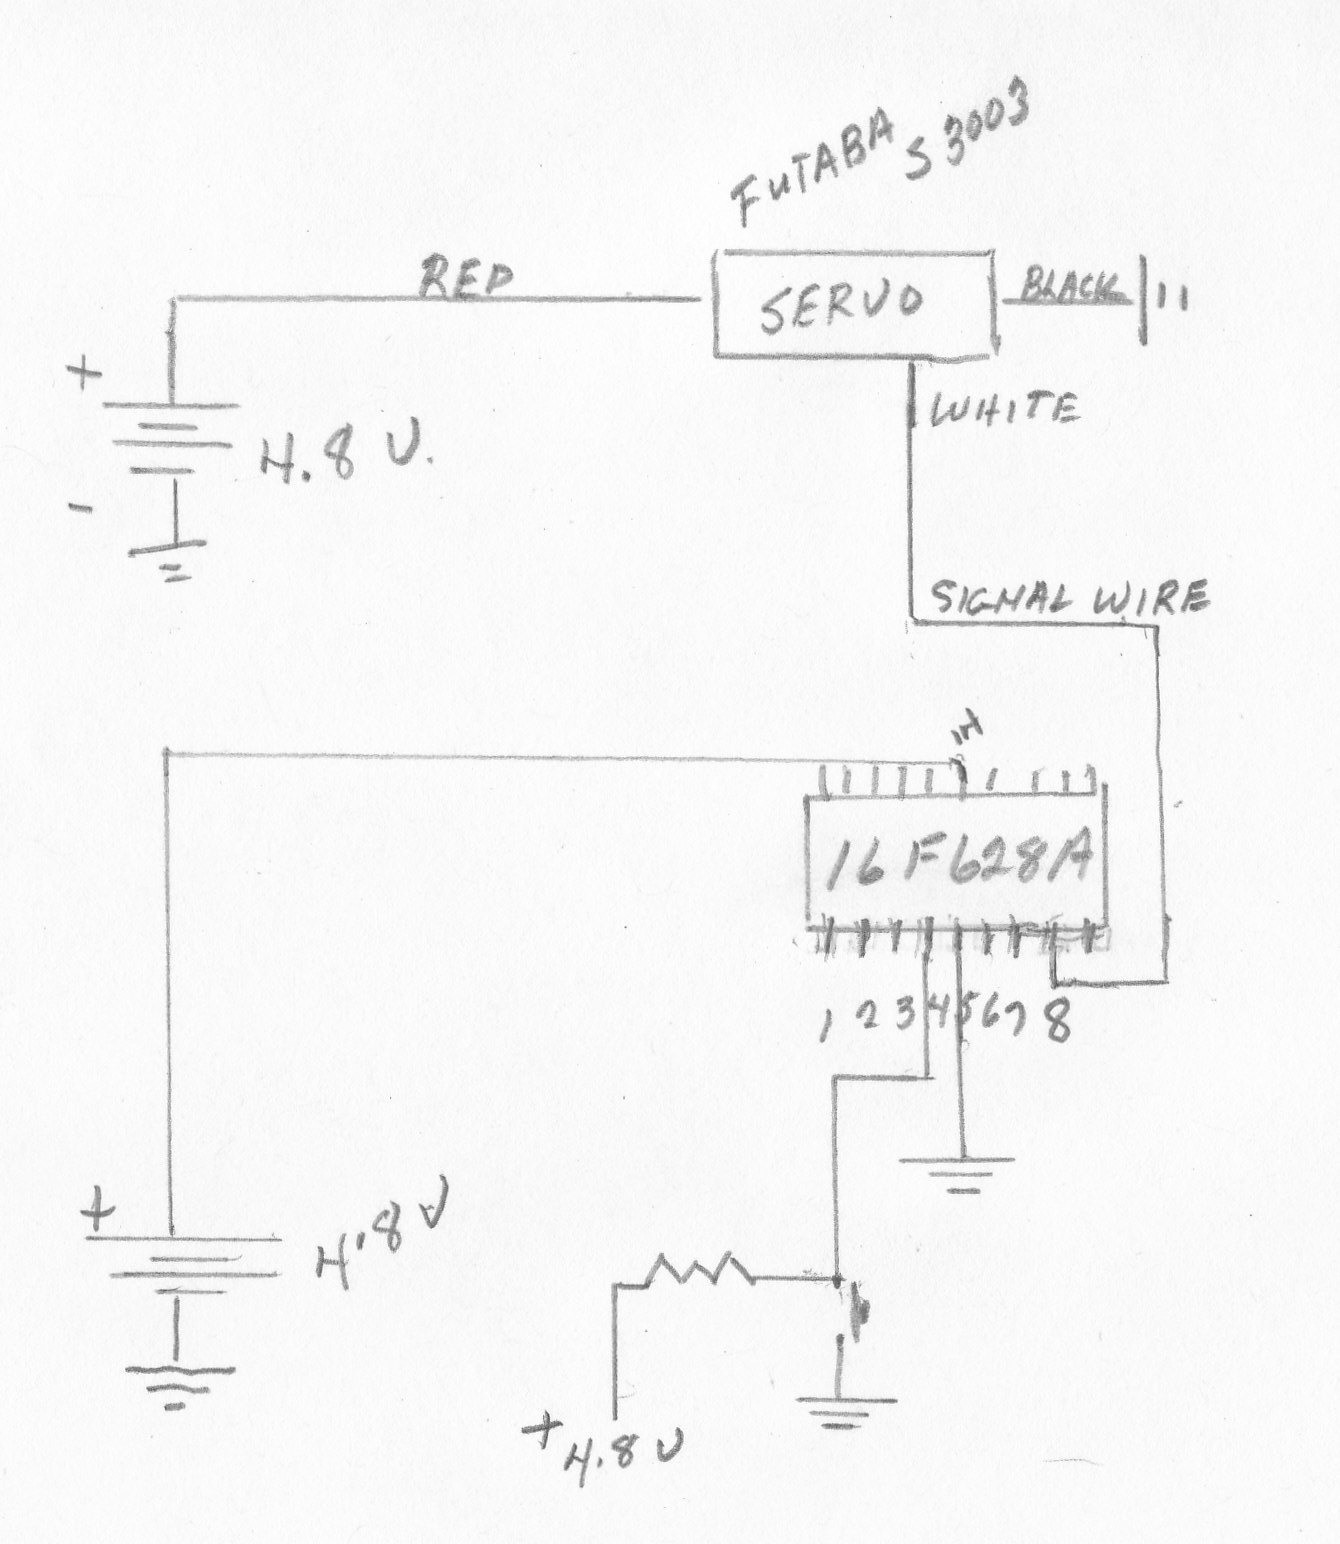 FUTABA S3003
RED
SERVO
BLACK
+
4.8 V.
WHITE
-
SIGNAL WIRE
14
16F628A
1 2 3 4 5 6 7 8
+
4.8 V
+4.8 V